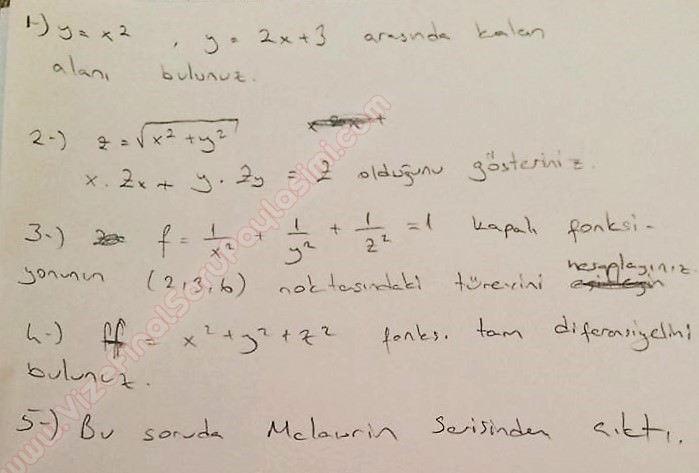 1-) y = x² , y = 2x+3 arasında kalan
alanı bulunuz.
2-) z = √(x² + y²)
x . Zx + y . Zy = Z olduğunu gösteriniz.
3-) f = 1/x² + 1/y² + 1/z² = 1 kapalı fonksi-
yonunun (2,3,6) noktasındaki türevini hesaplayınız.
4-) f = x² + y² + z² fonks. tam diferansiyelini
bulunuz.
5-) Bu soruda Mclaurin Serisinden çıktı.
www.VizeFinalSoruPaylasimi.com